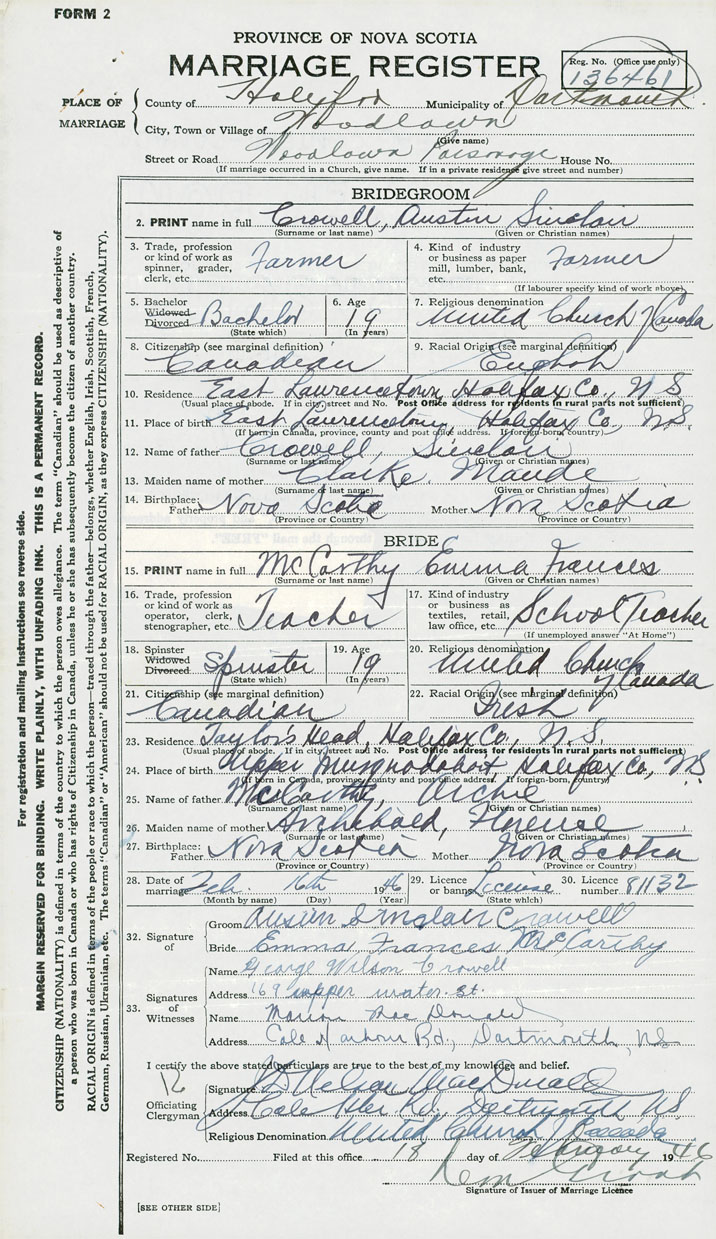 FORM 2
PROVINCE OF NOVA SCOTIA
MARRIAGE REGISTER
Reg. No. (Office use only)
136461
PLACE OF MARRIAGE
County of Halifax Municipality of Dartmouth
City, Town or Village of Woodlawn
(Give name)
Street or Road Woodlawn Parsonage House No.
(If marriage occurred in a Church, give name. If in a private residence give street and number)
BRIDEGROOM
2. PRINT name in full Crowell, Austin Sinclair
(Surname or last name) (Given or Christian names)
3. Trade, profession or kind of work as spinner, grader, clerk, etc. Farmer
4. Kind of industry or business as paper mill, lumber, bank, etc. Farmer
(If labourer specify kind of work above)
5. Bachelor Widowed Divorced Bachelor
(State which)
6. Age 19
(In years)
7. Religious denomination United Church of Canada
8. Citizenship (see marginal definition) Canadian
9. Racial Origin (see marginal definition) English
10. Residence East Lawrencetown, Halifax Co., N.S.
(Usual place of abode. If in city street and No. Post Office address for residents in rural parts not sufficient)
11. Place of birth East Lawrencetown, Halifax Co., N.S.
(If born in Canada, province, county and post office address. If foreign-born, country)
12. Name of father Crowell, Sinclair
(Surname or last name) (Given or Christian names)
13. Maiden name of mother Clarke, Maude
(Surname or last name) (Given or Christian names)
14. Birthplace: Father Nova Scotia Mother Nova Scotia
(Province or Country) (Province or Country)
BRIDE
15. PRINT name in full McCarthy Emma Frances
(Surname or last name) (Given or Christian names)
16. Trade, profession or kind of work as operator, clerk, stenographer, etc. Teacher
17. Kind of industry or business as textiles, retail, law office, etc. School Teacher
(If unemployed answer "At Home")
18. Spinster Widowed Divorced Spinster
(State which)
19. Age 19
(In years)
20. Religious denomination United Church of Canada
21. Citizenship (see marginal definition) Canadian
22. Racial Origin (see marginal definition) Irish
23. Residence Taylor's Head, Halifax Co., N.S.
(Usual place of abode. If in city street and No. Post Office address for residents in rural parts not sufficient)
24. Place of birth Upper Musquodoboit Halifax Co., N.S.
(If born in Canada, province, county and post office address. If foreign-born, country)
25. Name of father McCarthy, Archie
(Surname or last name) (Given or Christian names)
26. Maiden name of mother Archibald, Florense
(Surname or last name) (Given or Christian names)
27. Birthplace: Father Nova Scotia Mother Nova Scotia
(Province or Country) (Province or Country)
28. Date of marriage Feb. 16th 1946
(Month by name) (Day) (Year)
29. Licence or banns License
(State which)
30. Licence number 81132
32. Signature of
Groom Austin Sinclair Crowell
Bride Emma Frances McCarthy
33. Signatures of Witnesses
Name George Wilson Crowell
Address 169 upper water. st.
Name Marion MacDonald
Address Cole Harbour Rd., Dartmouth, NS
I certify the above stated particulars are true to the best of my knowledge and belief.
12
Officiating Clergyman
Signature D Nelson MacDonald
Address Cole Hbr Rd, Dartmouth N.S.
Religious Denomination United Church of Canada
Registered No. Filed at this office 18 day of February 1946
Signature of Issuer of Marriage Licence
[SEE OTHER SIDE]
For registration and mailing instructions see reverse side.
MARGIN RESERVED FOR BINDING. WRITE PLAINLY, WITH UNFADING INK. THIS IS A PERMANENT RECORD.
CITIZENSHIP (NATIONALITY) is defined in terms of the country to which the person owes allegiance. The term "Canadian" should be used as descriptive of
a person who was born in Canada or who has rights of Citizenship in Canada, unless he or she has subsequently become the citizen of another country.
RACIAL ORIGIN is defined in terms of the people or race to which the person—traced through the father—belongs, whether English, Irish, Scottish, French,
German, Russian, Ukrainian, etc. The terms "Canadian" or "American" should not be used for RACIAL ORIGIN, as they express CITIZENSHIP (NATIONALITY).